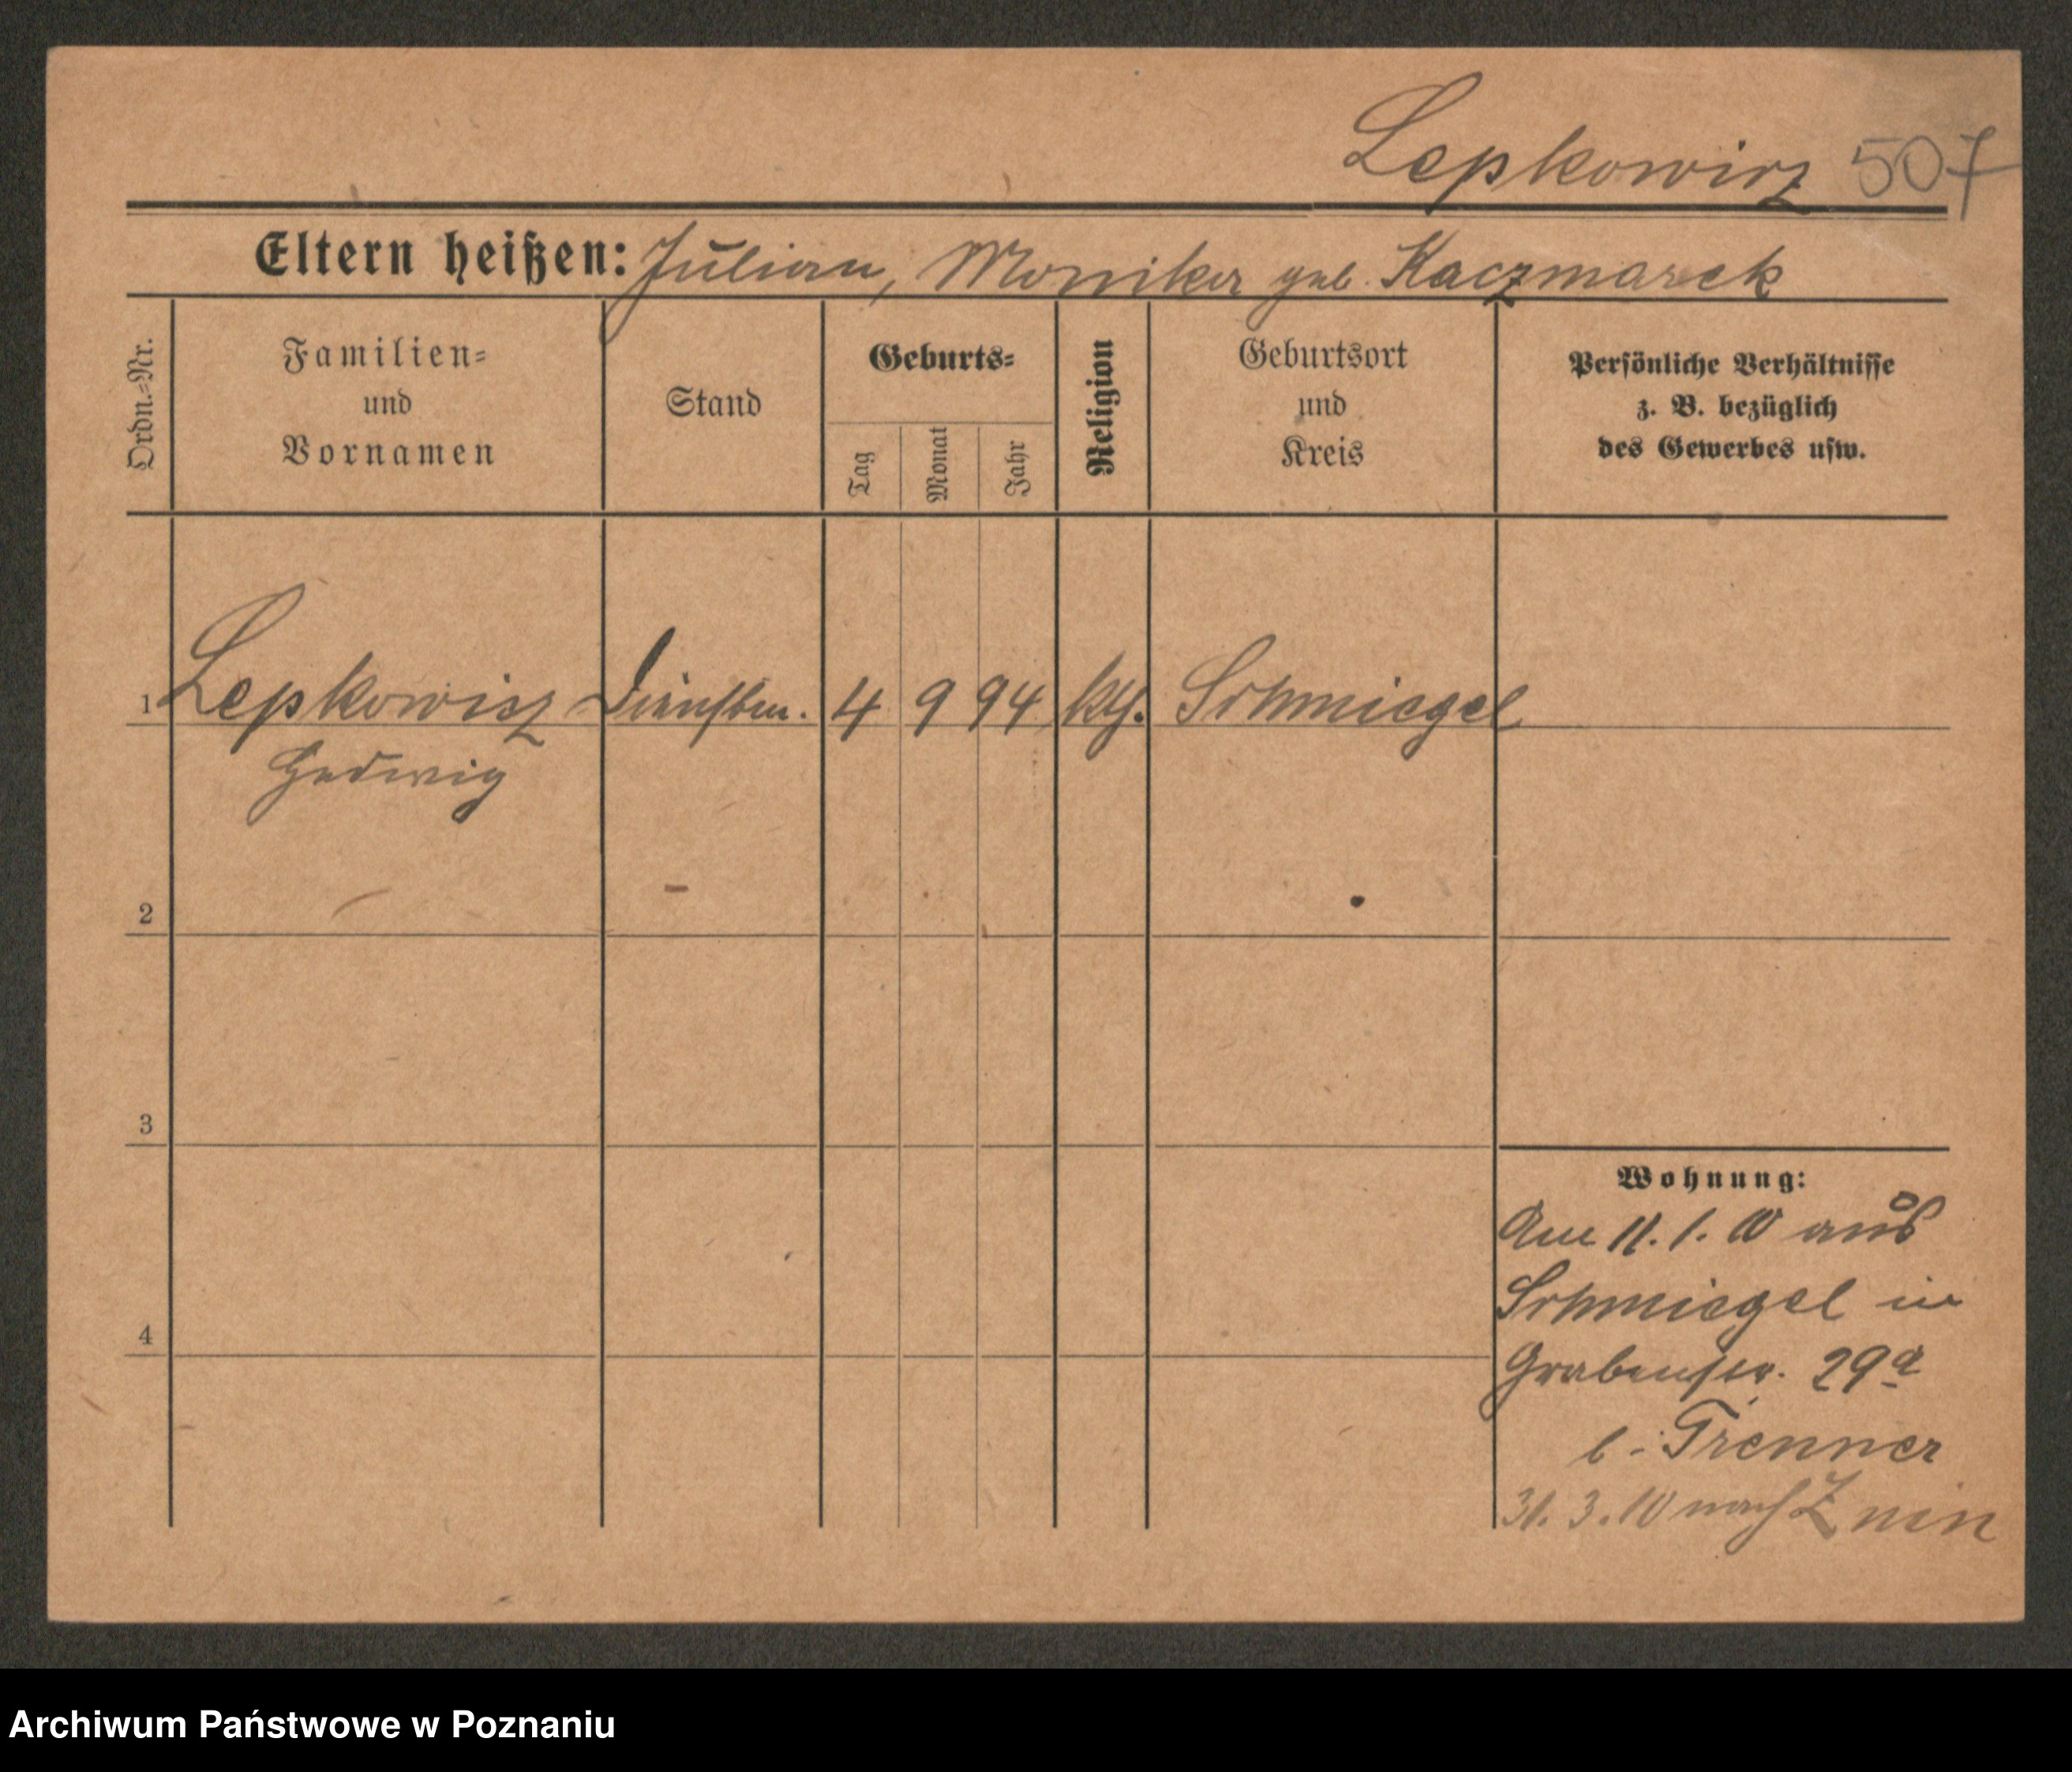 Lepkowicz 507
Eltern heißen: Julian, Monika geb. Kaczmarek
Ordn.-Nr.
Familien-
und
Vornamen
Stand
Geburts-
Tag
Monat
Jahr
Religion
Geburtsort
und
Kreis
Persönliche Verhältnisse
z. B. bezüglich
des Gewerbes usw.
1 Lepkowicz Dienstm. 4 9 94 kth. Schmiegel
Hedwig
2
3
4
Wohnung:
Am 11. 1. 10 aus
Schmiegel in
Grabenstr. 29a
b. Trenner
31. 3. 10 nach Znin
Archiwum Państwowe w Poznaniu